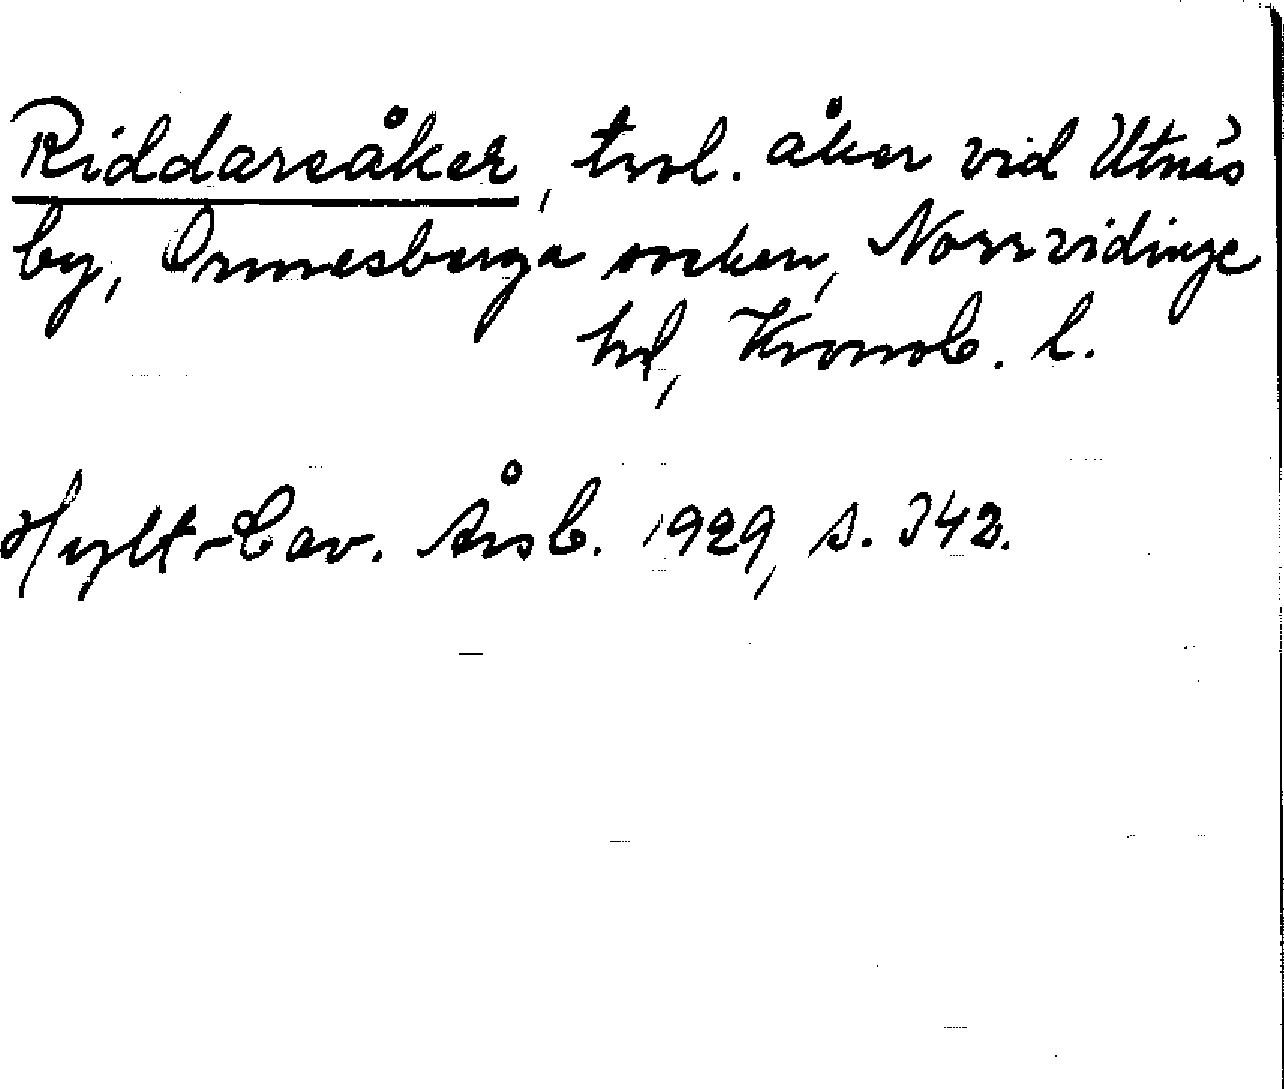 Riddaresåker, trol. åker vid Utnäs
by, Ormesberga socken, Norrvidinge
hd, Kronob. l.
Hylt-Cav. Årsb. 1929, s. 342.